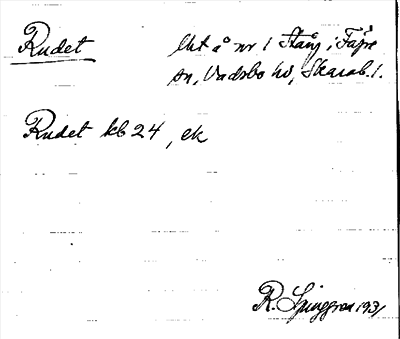 Rudet
Utt å nr 1 Stång i Fägre
sn, Vadsbo hd, Skarab. l.
Rudet kb 24, ek
R. Ljunggren 1931